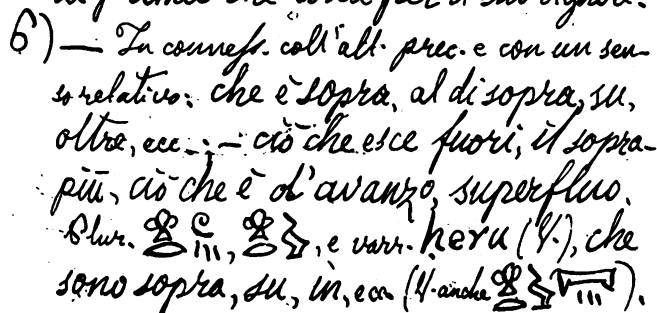 6) — In conness. coll'all. prec. e con un sen-
so relativo: che è sopra, al di sopra, su,
oltre, ecc. ; — ciò che esce fuori, il sopra-
più, ciò che è d'avanzo, superfluo.
Plur. , e varr. heru (V.), che
sono sopra, su, in, ecc. (V. anche ).